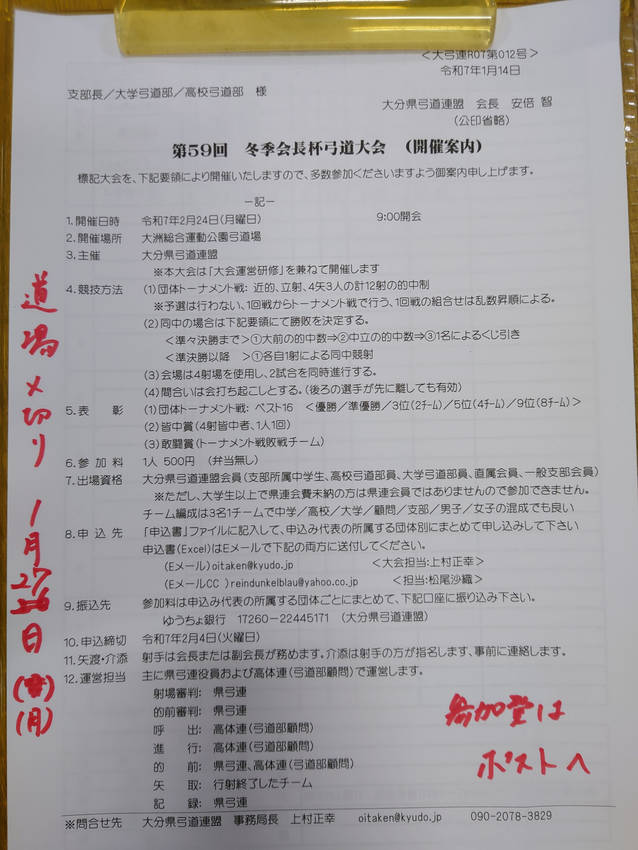 <大弓連R07第012号>
令和7年1月14日
支部長／大学弓道部／高校弓道部 様
大分県弓道連盟 会長 安倍 智
(公印省略)
第59回 冬季会長杯弓道大会 (開催案内)
標記大会を、下記要領により開催いたしますので、多数参加くださいますよう御案内申し上げます。
－記－
1.開催日時 令和7年2月24日(月曜日) 9:00開会
2.開催場所 大洲総合運動公園弓道場
3.主催 大分県弓道連盟
※本大会は「大会運営研修」を兼ねて開催します
4.競技方法 (1)団体トーナメント戦: 近的、立射、4矢3人の計12射の的中制
※予選は行わない、1回戦からトーナメント戦で行う、1回戦の組合せは乱数昇順による。
(2)同中の場合は下記要領にて勝敗を決定する。
<準々決勝まで>①大前の的中数⇒②中立の的中数⇒③1名によるくじ引き
<準決勝以降 >①各自1射による同中競射
(3)会場は4射場を使用し、2試合を同時進行する。
(4)間合いは会打ち起こしとする。(後ろの選手が先に離しても有効)
5.表 彰 (1)団体トーナメント戦: ベスト16 <優勝／準優勝／3位(2チーム)／5位(4チーム)／9位(8チーム)>
(2)皆中賞(4射皆中者、1人1回)
(3)敢闘賞(トーナメント戦敗戦チーム)
6.参 加 料 1人 500円 (弁当無し)
7.出場資格 大分県弓道連盟会員(支部所属中学生、高校弓道部員、大学弓道部員、直属会員、一般支部会員)
※ただし、大学生以上で県連会費未納の方は県連会員ではありませんので参加できません。
チーム編成は3名1チームで中学／高校／大学／顧問／支部／男子／女子の混成でも良い
8.申 込 先 「申込書」ファイルに記入して、申込み代表の所属する団体別にまとめて申し込みして下さい
申込書(Excel)はEメールで下記の両方に送付してください。
(Eメール)oitaken@kyudo.jp <大会担当:上村正幸>
(EメールCC )reindunkelblau@yahoo.co.jp <担当:松尾沙織>
9.振込先 参加料は申込み代表の所属する団体ごとにまとめて、下記口座に振り込み下さい。
ゆうちょ銀行 17260－22445171 (大分県弓道連盟)
10.申込締切 令和7年2月4日(火曜日)
11.矢渡・介添 射手は会長または副会長が務めます。介添は射手の方が指名します、事前に連絡します。
12.運営担当 主に県弓連役員および高体連(弓道部顧問)で運営します。
射場審判: 県弓連
的前審判: 県弓連
呼 出: 高体連(弓道部顧問)
進 行: 高体連(弓道部顧問)
的 前: 県弓連、高体連(弓道部顧問)
矢 取: 行射終了したチーム
記 録: 県弓連
※問合せ先 大分県弓道連盟 事務局長 上村正幸 oitaken@kyudo.jp 090-2078-3829
道場〆切り 1月27日(月)
参加費は
ポストへ